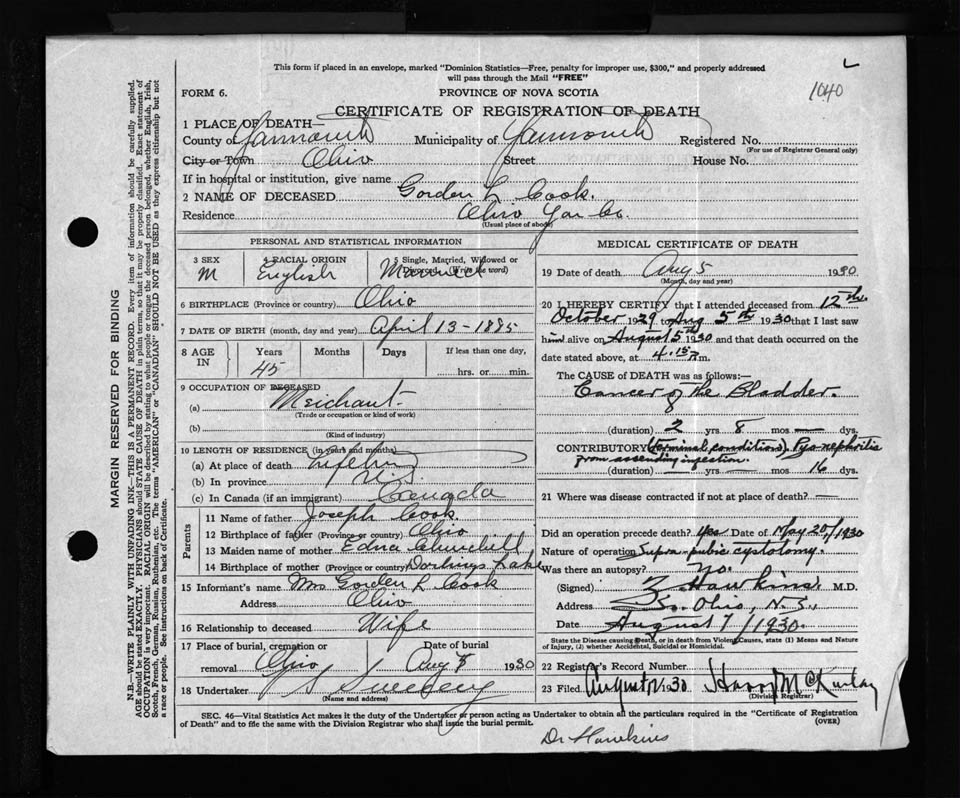 This form if placed in an envelope, marked "Dominion Statistics—Free, penalty for improper use, $300," and properly addressed
will pass through the Mail "FREE"
1040
FORM 6.
PROVINCE OF NOVA SCOTIA
CERTIFICATE OF REGISTRATION OF DEATH
1 PLACE OF DEATH—
County of Yarmouth Municipality of Yarmouth Registered No.
(For use of Registrar General only)
City or Town Ohio Street House No.
If in hospital or institution, give name
2 NAME OF DECEASED Gorden L. Cook.
Residence Ohio Yar Co.
(Usual place of abode)
PERSONAL AND STATISTICAL INFORMATION
3 SEX 4 RACIAL ORIGIN 5 Single, Married, Widowed or Divorced (Write the word)
M English Married
6 BIRTHPLACE (Province or country) Ohio
7 DATE OF BIRTH (month, day and year) April 13-1885
8 AGE IN Years Months Days If less than one day,
45 hrs. or min.
9 OCCUPATION OF DECEASED
(a) Merchant
(Trade or occupation or kind of work)
(b)
(Kind of industry)
10 LENGTH OF RESIDENCE (in years and months)
(a) At place of death Lifetime
(b) In province
(c) In Canada (if an immigrant) Canada
Parents
11 Name of father Joseph Cook
12 Birthplace of father (Province or country) Ohio
13 Maiden name of mother Edna Churchill
14 Birthplace of mother (Province or country) Darlings Lake
15 Informant's name Mrs Gorden L Cook
Address Ohio
16 Relationship to deceased Wife
17 Place of burial, cremation or removal Date of burial
Ohio Aug 1930
18 Undertaker Sweeney
(Name and address)
MEDICAL CERTIFICATE OF DEATH
19 Date of death Aug 5 1930
(Month, day and year)
20 I HEREBY CERTIFY that I attended deceased from 12th.
October 1929 to Aug 5th 1930 that I last saw
him alive on August 5th 1930 and that death occurred on the
date stated above, at 4.15 P.m.
The CAUSE OF DEATH was as follows:—
Cancer of the Bladder.
(duration) 2 yrs 8 mos — dys.
CONTRIBUTORY (terminal conditions). Pyo-nephritis
from ascending infection.
(duration) yrs — mos 16 dys.
21 Where was disease contracted if not at place of death? —
Did an operation precede death? Yes Date of May 20/1930
Nature of operation Supra-pubic cystotomy.
Was there an autopsy? No.
(Signed) Z Hawkins. M.D.
Address So. Ohio, N.S.,
Date August 7/1930.
State the Disease causing Death, or in death from Violent Causes, state (1) Means and Nature
of Injury, (2) whether Accidental, Suicidal or Homicidal.
22 Registrar's Record Number
23 Filed August 1930 Harry McKinlay
(Division Registrar)
SEC. 46—Vital Statistics Act makes it the duty of the Undertaker or person acting as Undertaker to obtain all the particulars required in the "Certificate of Registration
of Death" and to file the same with the Division Registrar who shall issue the burial permit.
(OVER)
Dr Hawkins
MARGIN RESERVED FOR BINDING
N.B.—WRITE PLAINLY WITH UNFADING INK—THIS IS A PERMANENT RECORD. Every item of information should be carefully supplied.
AGE should be stated EXACTLY. PHYSICIANS should STATE CAUSE OF DEATH in plain terms, so that it may be properly classified. Exact statement of
OCCUPATION is very important. RACIAL ORIGIN will be described by stating to what people or tongue the deceased person belonged, whether English, Irish,
Scotch, French, German, Russian, Ruthenian, etc. The terms "AMERICAN" or "CANADIAN" SHOULD NOT BE USED as they express citizenship but not
a race or people. See instructions on back of Certificate.